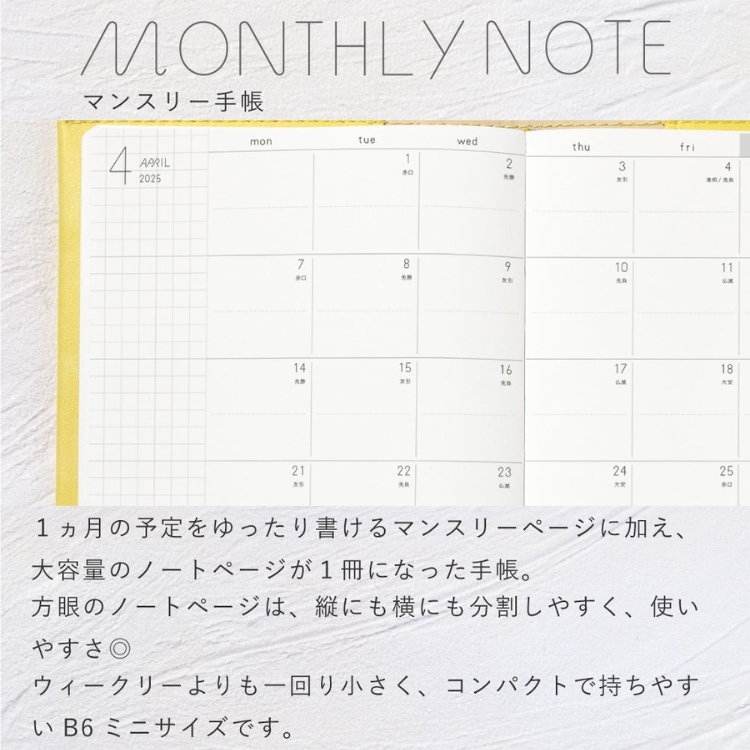 MONTHLY NOTE
マンスリー手帳
mon tue wed thu fri
4 APRIL
2025
1 2 3 4
赤口 先勝 友引 清明/先負
7 8 9 10 11
赤口 先勝 友引 先負 仏滅
14 15 16 17 18
先勝 友引 先負 仏滅 大安
21 22 23 24 25
友引 先負 仏滅 大安 赤口
1ヵ月の予定をゆったり書けるマンスリーページに加え、
大容量のノートページが1冊になった手帳。
方眼のノートページは、縦にも横にも分割しやすく、使い
やすさ◎
ウィークリーよりも一回り小さく、コンパクトで持ちやす
い B6 ミニサイズです。